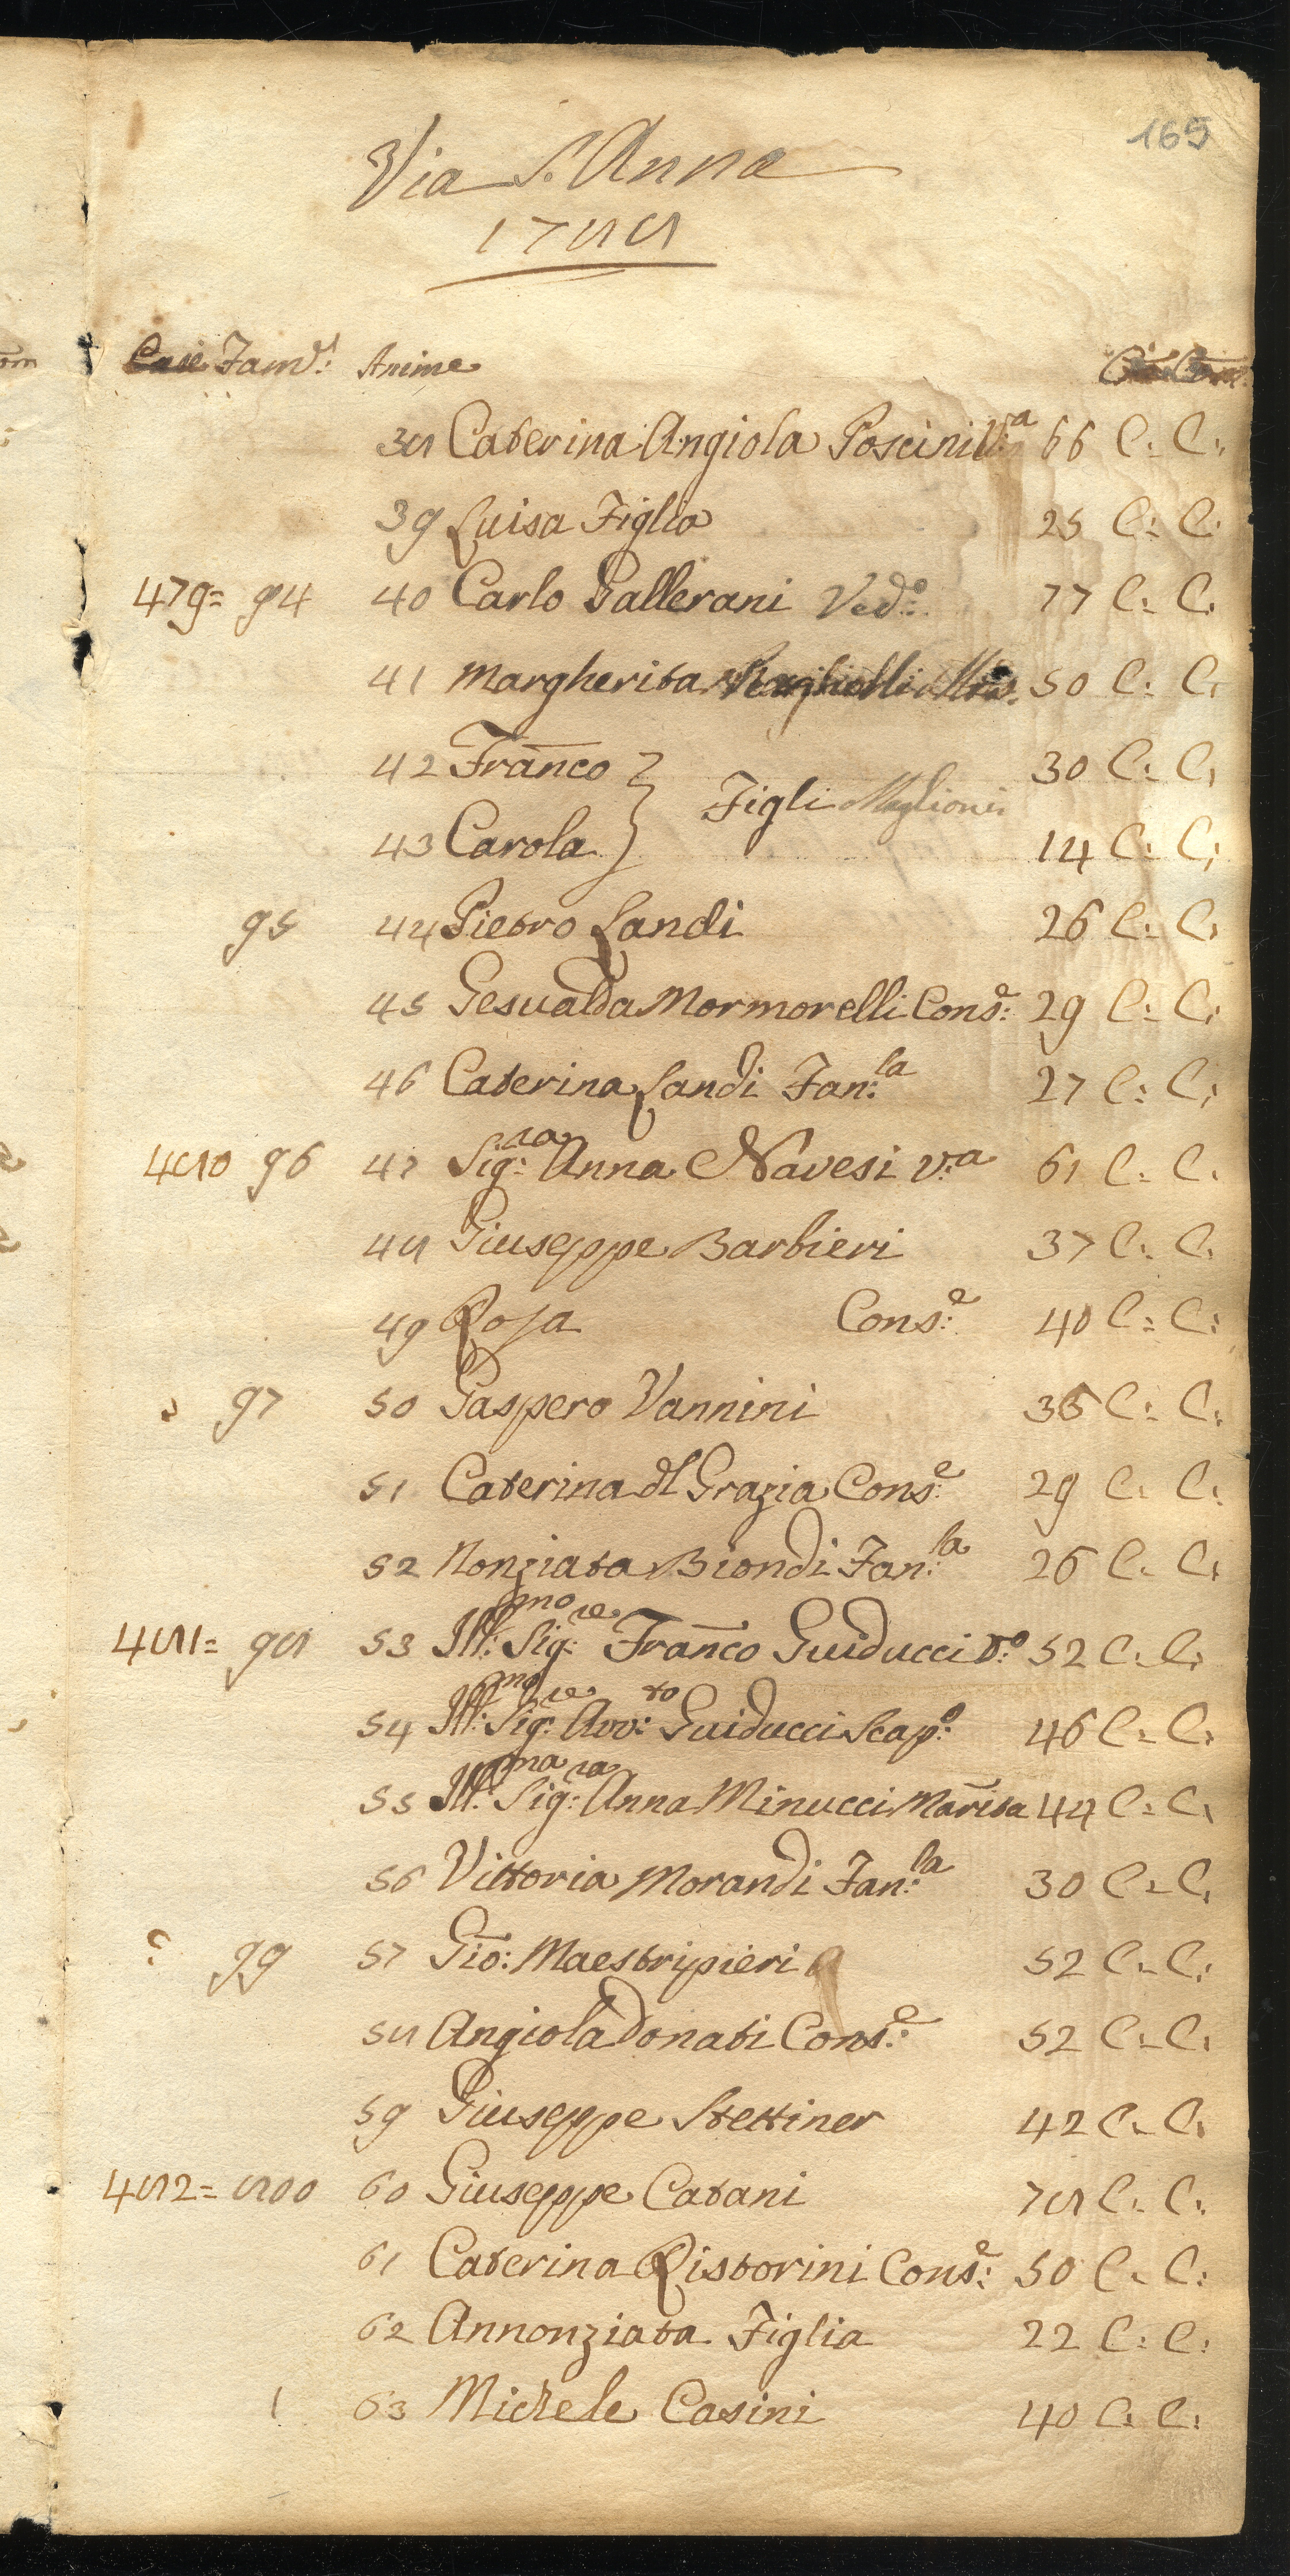 165
Via S. Anna
1788
Case Fam: Anime
38 Caterina Angiola Poscini V:a 66 C: C:
39 Luisa Figlia 25 C: C:
479= 94 40 Carlo Gallerani Ved:o 77 C: C:
41 Margherita 50 C: C:
42 Franco 30 C: C:
Figli Maglioni
43 Carola 14 C: C:
95 44 Pietro Landi 26 C: C:
45 Gesualda Mormorelli Cons:e 29 C: C:
46 Caterina Landi Fan:la 27 C: C:
480 96 47 Sig:ra Anna Navesi V:a 61 C: C:
48 Giuseppe Barbieri 37 C: C:
49 Rosa Cons:e 40 C: C:
97 50 Gaspero Vannini 36 C: C:
51 Caterina dl Grazia Cons:e 29 C: C:
52 Nonziata Biondi Fan:la 26 C: C:
481= 98 53 Ill:mo Sig:re Franco Guiducci V:o 52 C: C:
54 Ill:mo Sig:re Avv:to Guiducci Scap:o 46 C: C:
55 Ill:ma Sig:ra Anna Minucci Marita 44 C: C:
56 Vittoria Morandi Fan:la 30 C: C:
99 57 Gio: Maestripieri 52 C: C:
58 Angiola Donati Cons:e 52 C: C:
59 Giuseppe Stettiner 42 C: C:
482= 800 60 Giuseppe Catani 78 C: C:
61 Caterina Ristorini Cons:e 50 C: C:
62 Annonziata Figlia 22 C: C:
1 63 Michele Casini 40 C: C: